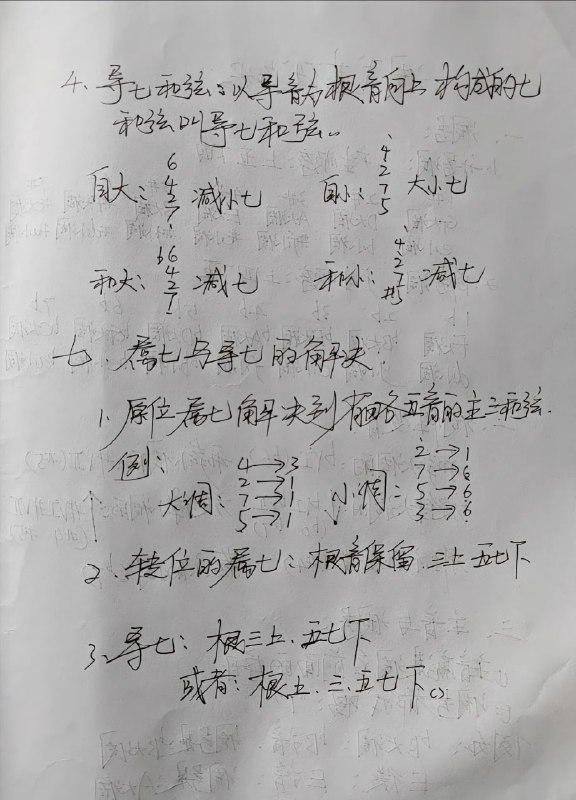 4、导七和弦：以导音为根音向上构成的七
和弦叫导七和弦。
6
4
2
7
自大：减小七
4
2
7
5
自小：大小七
b6
4
2
7
和大：减七
4
2
7
#5
和小：减七
七、属七与导七的解决
1、原位属七解决到省略五音的主三和弦.
例：
大调：
4→3
2→1
7→1
5→1
小调：
2→1
7→6
5→6
3→6
2、转位的属七：根音保留.三上五七下
3、导七：根三上.五七下
或者：根上.三.五七下。